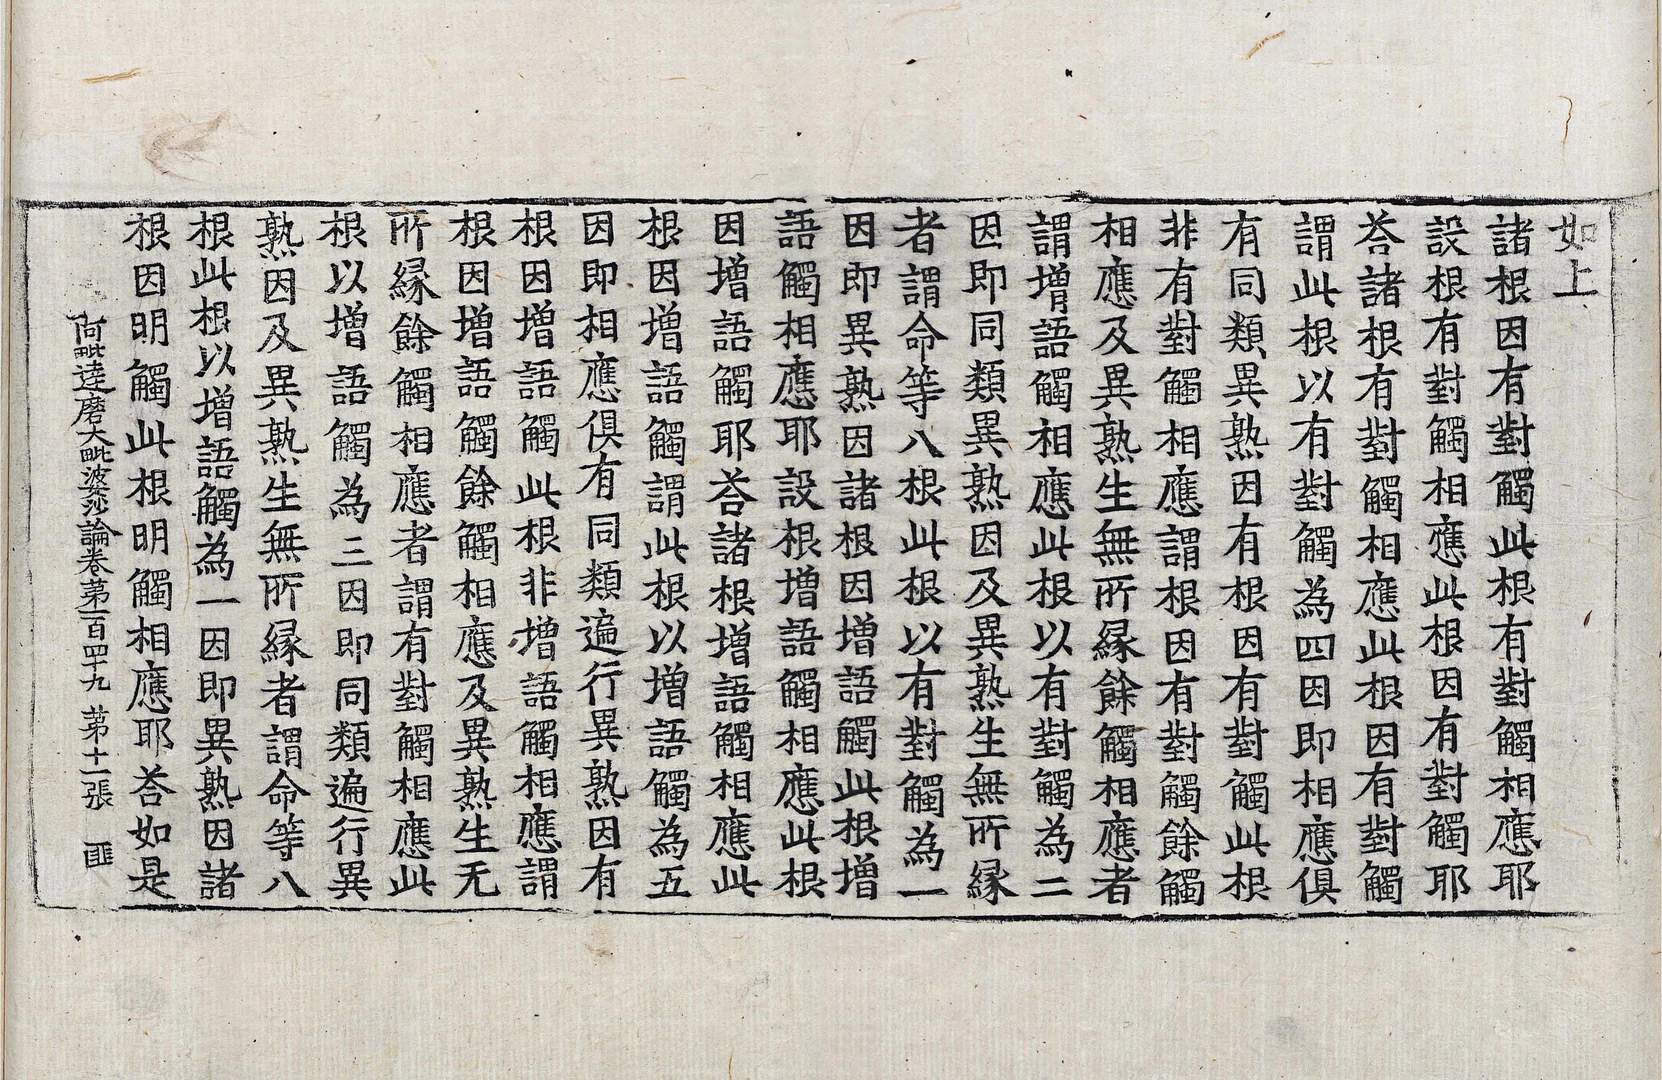 如上
諸根因有對觸此根有對觸相應耶
設根有對觸相應此根因有對觸耶
荅諸根有對觸相應此根因有對觸
謂此根以有對觸為四因即相應俱
有同類異熟因有根因有對觸此根
非有對觸相應謂根因有對觸餘觸
相應及異熟生無所縁餘觸相應者
謂增語觸相應此根以有對觸為二
因即同類異熟因及異熟生無所縁
者謂命等八根此根以有對觸為一
因即異熟因諸根因增語觸此根增
語觸相應耶設根增語觸相應此根
因增語觸耶荅諸根增語觸相應此
根因增語觸謂此根以增語觸為五
因即相應俱有同類遍行異熟因有
根因增語觸此根非增語觸相應謂
根因增語觸餘觸相應及異熟生无
所縁餘觸相應者謂有對觸相應此
根以增語觸為三因即同類遍行異
熟因及異熟生無所縁者謂命等八
根此根以增語觸為一因即異熟因諸
根因明觸此根明觸相應耶荅如是
阿毗達磨大毗婆沙論卷第一百四十九 第十一張 匪